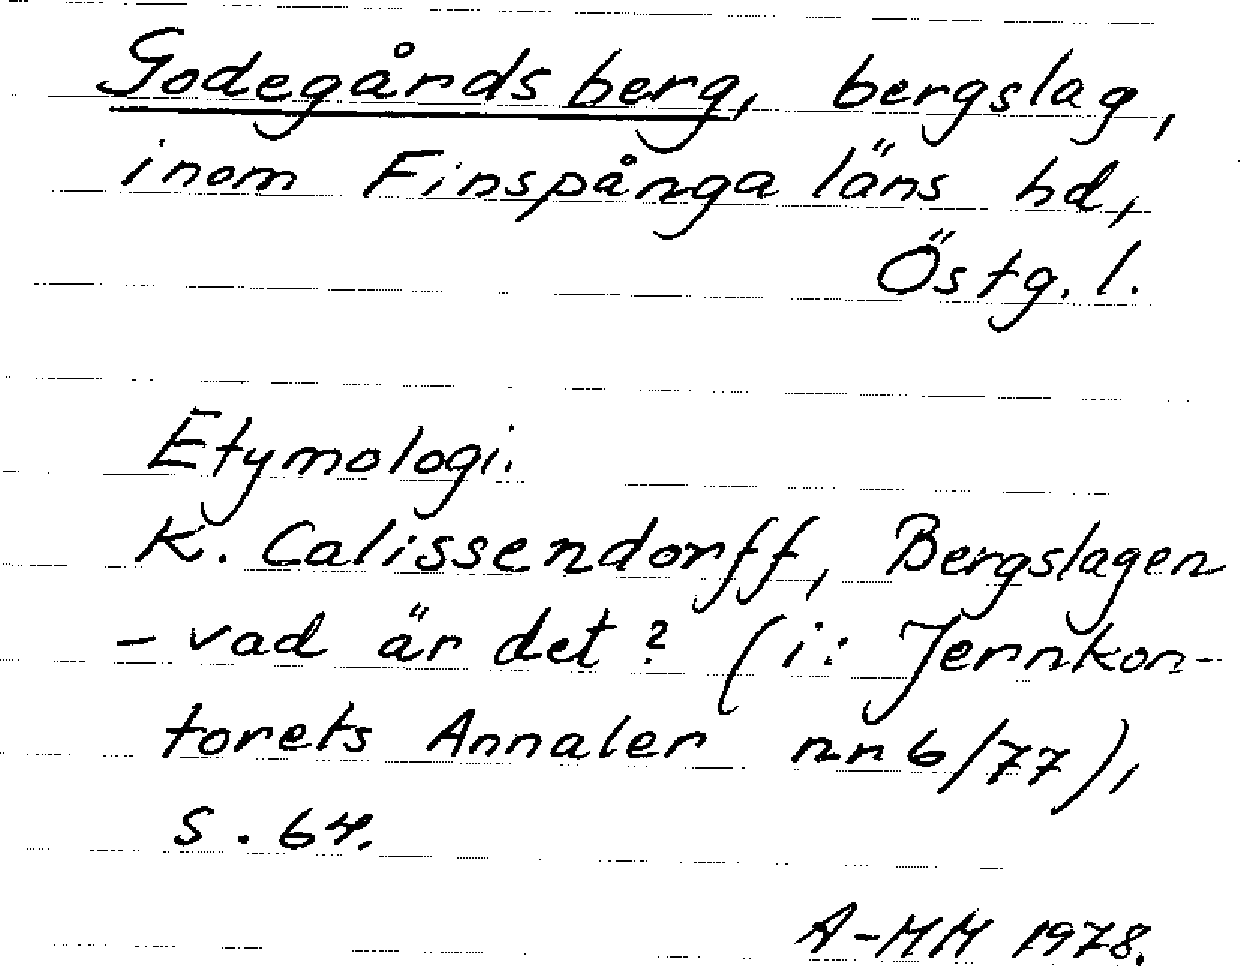 Godegårds berg, bergslag,
inom Finspånga läns hd,
Östg. l.
Etymologi.
K. Calissendorff, Bergslagen
- vad är det? (i: Jernkon-
torets Annaler nr 6/77),
s. 64.
A-MH 1978.